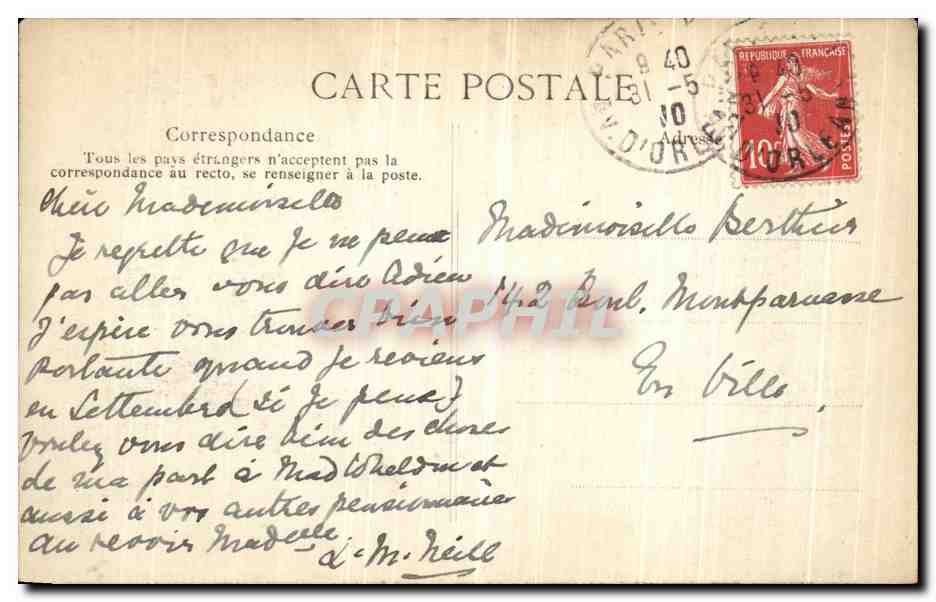 CARTE POSTALE
Correspondance
Tous les pays étrangers n'acceptent pas la
correspondance au recto, se renseigner à la poste.
Adresse
PARIS
9 40
31 -5
10
AV. D'ORLEANS
9 40
31 -5
10
D'ORLEANS
REPUBLIQUE FRANÇAISE
10c
POSTES
Chère Mademoiselle
Je regrette que Je ne peux
pas aller vous dire Adieu
J'espère vous trouver bien
portante quand Je reviens
en Settembre (si Je peux)
voulez vous dire bien des choses
de ma part à Mad
aussi à vos autres pensionnaires
au revoir Madelle
L. M. Neill
Mademoiselle Berthier
142 Boul. Montparnasse
En Ville
CRAPHIL